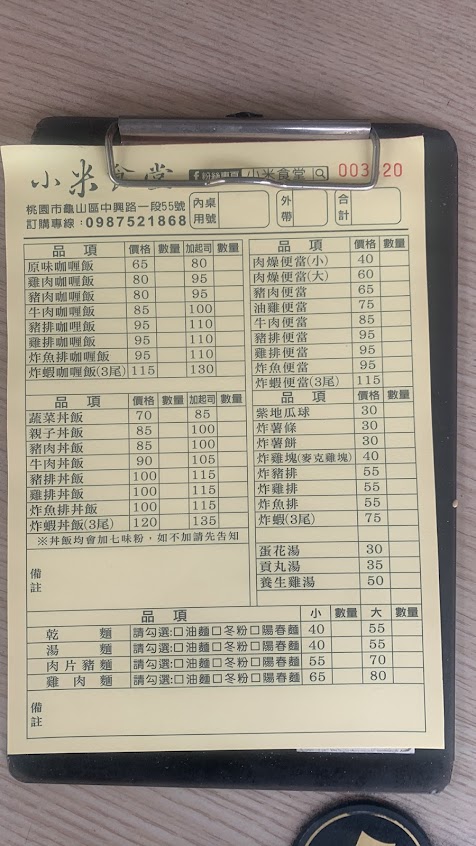 小米食堂 f粉絲專頁 小米食堂 003 20
桃園市龜山區中興路一段55號
訂購專線：0987521868
內桌用號 外帶 合計
品項 價格 數量 加起司 數量
原味咖喱飯 65 80
雞肉咖喱飯 80 95
豬肉咖喱飯 80 95
牛肉咖喱飯 85 100
豬排咖喱飯 95 110
雞排咖喱飯 95 110
炸魚排咖喱飯 95 110
炸蝦咖喱飯(3尾) 115 130
品項 價格 數量 加起司 數量
蔬菜丼飯 70 85
親子丼飯 85 100
豬肉丼飯 85 100
牛肉丼飯 90 105
豬排丼飯 100 115
雞排丼飯 100 115
炸魚排丼飯 100 115
炸蝦丼飯(3尾) 120 135
※丼飯均會加七味粉，如不加請先告知
備註
品項 價格 數量
肉燥便當(小) 40
肉燥便當(大) 60
豬肉便當 65
油雞便當 75
牛肉便當 85
豬排便當 95
雞排便當 95
炸魚便當 95
炸蝦便當(3尾) 115
品項 價格 數量
紫地瓜球 30
炸薯條 30
炸薯餅 30
炸雞塊(麥克雞塊) 40
炸豬排 55
炸雞排 55
炸魚排 55
炸蝦(3尾) 75
蛋花湯 30
貢丸湯 35
養生雞湯 50
品項 小 數量 大 數量
乾麵 請勾選:□油麵□冬粉□陽春麵 40 55
湯麵 請勾選:□油麵□冬粉□陽春麵 40 55
肉片豬麵 請勾選:□油麵□冬粉□陽春麵 55 70
雞肉麵 請勾選:□油麵□冬粉□陽春麵 65 80
備註